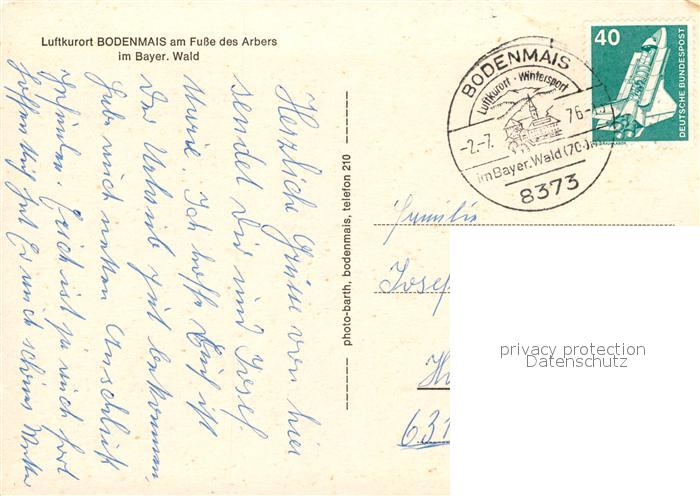 Luftkurort BODENMAIS am Fuße des Arbers
im Bayer. Wald
Herzliche Grüße von hier
sendet Dir und Josef
Marie. Ich hoffe Euch ist
Der Urlaub gut bekommen.
Hab auch netten Anschluß
gefunden. Euch ist ja auch hoffe
photo-barth, bodenmais, telefon 210
BODENMAIS
Luftkurort · Wintersport
-2.-7. 76
im Bayer. Wald (700
8373
40
DEUTSCHE BUNDESPOST
Familie
Josef
631
privacy protection
Datenschutz